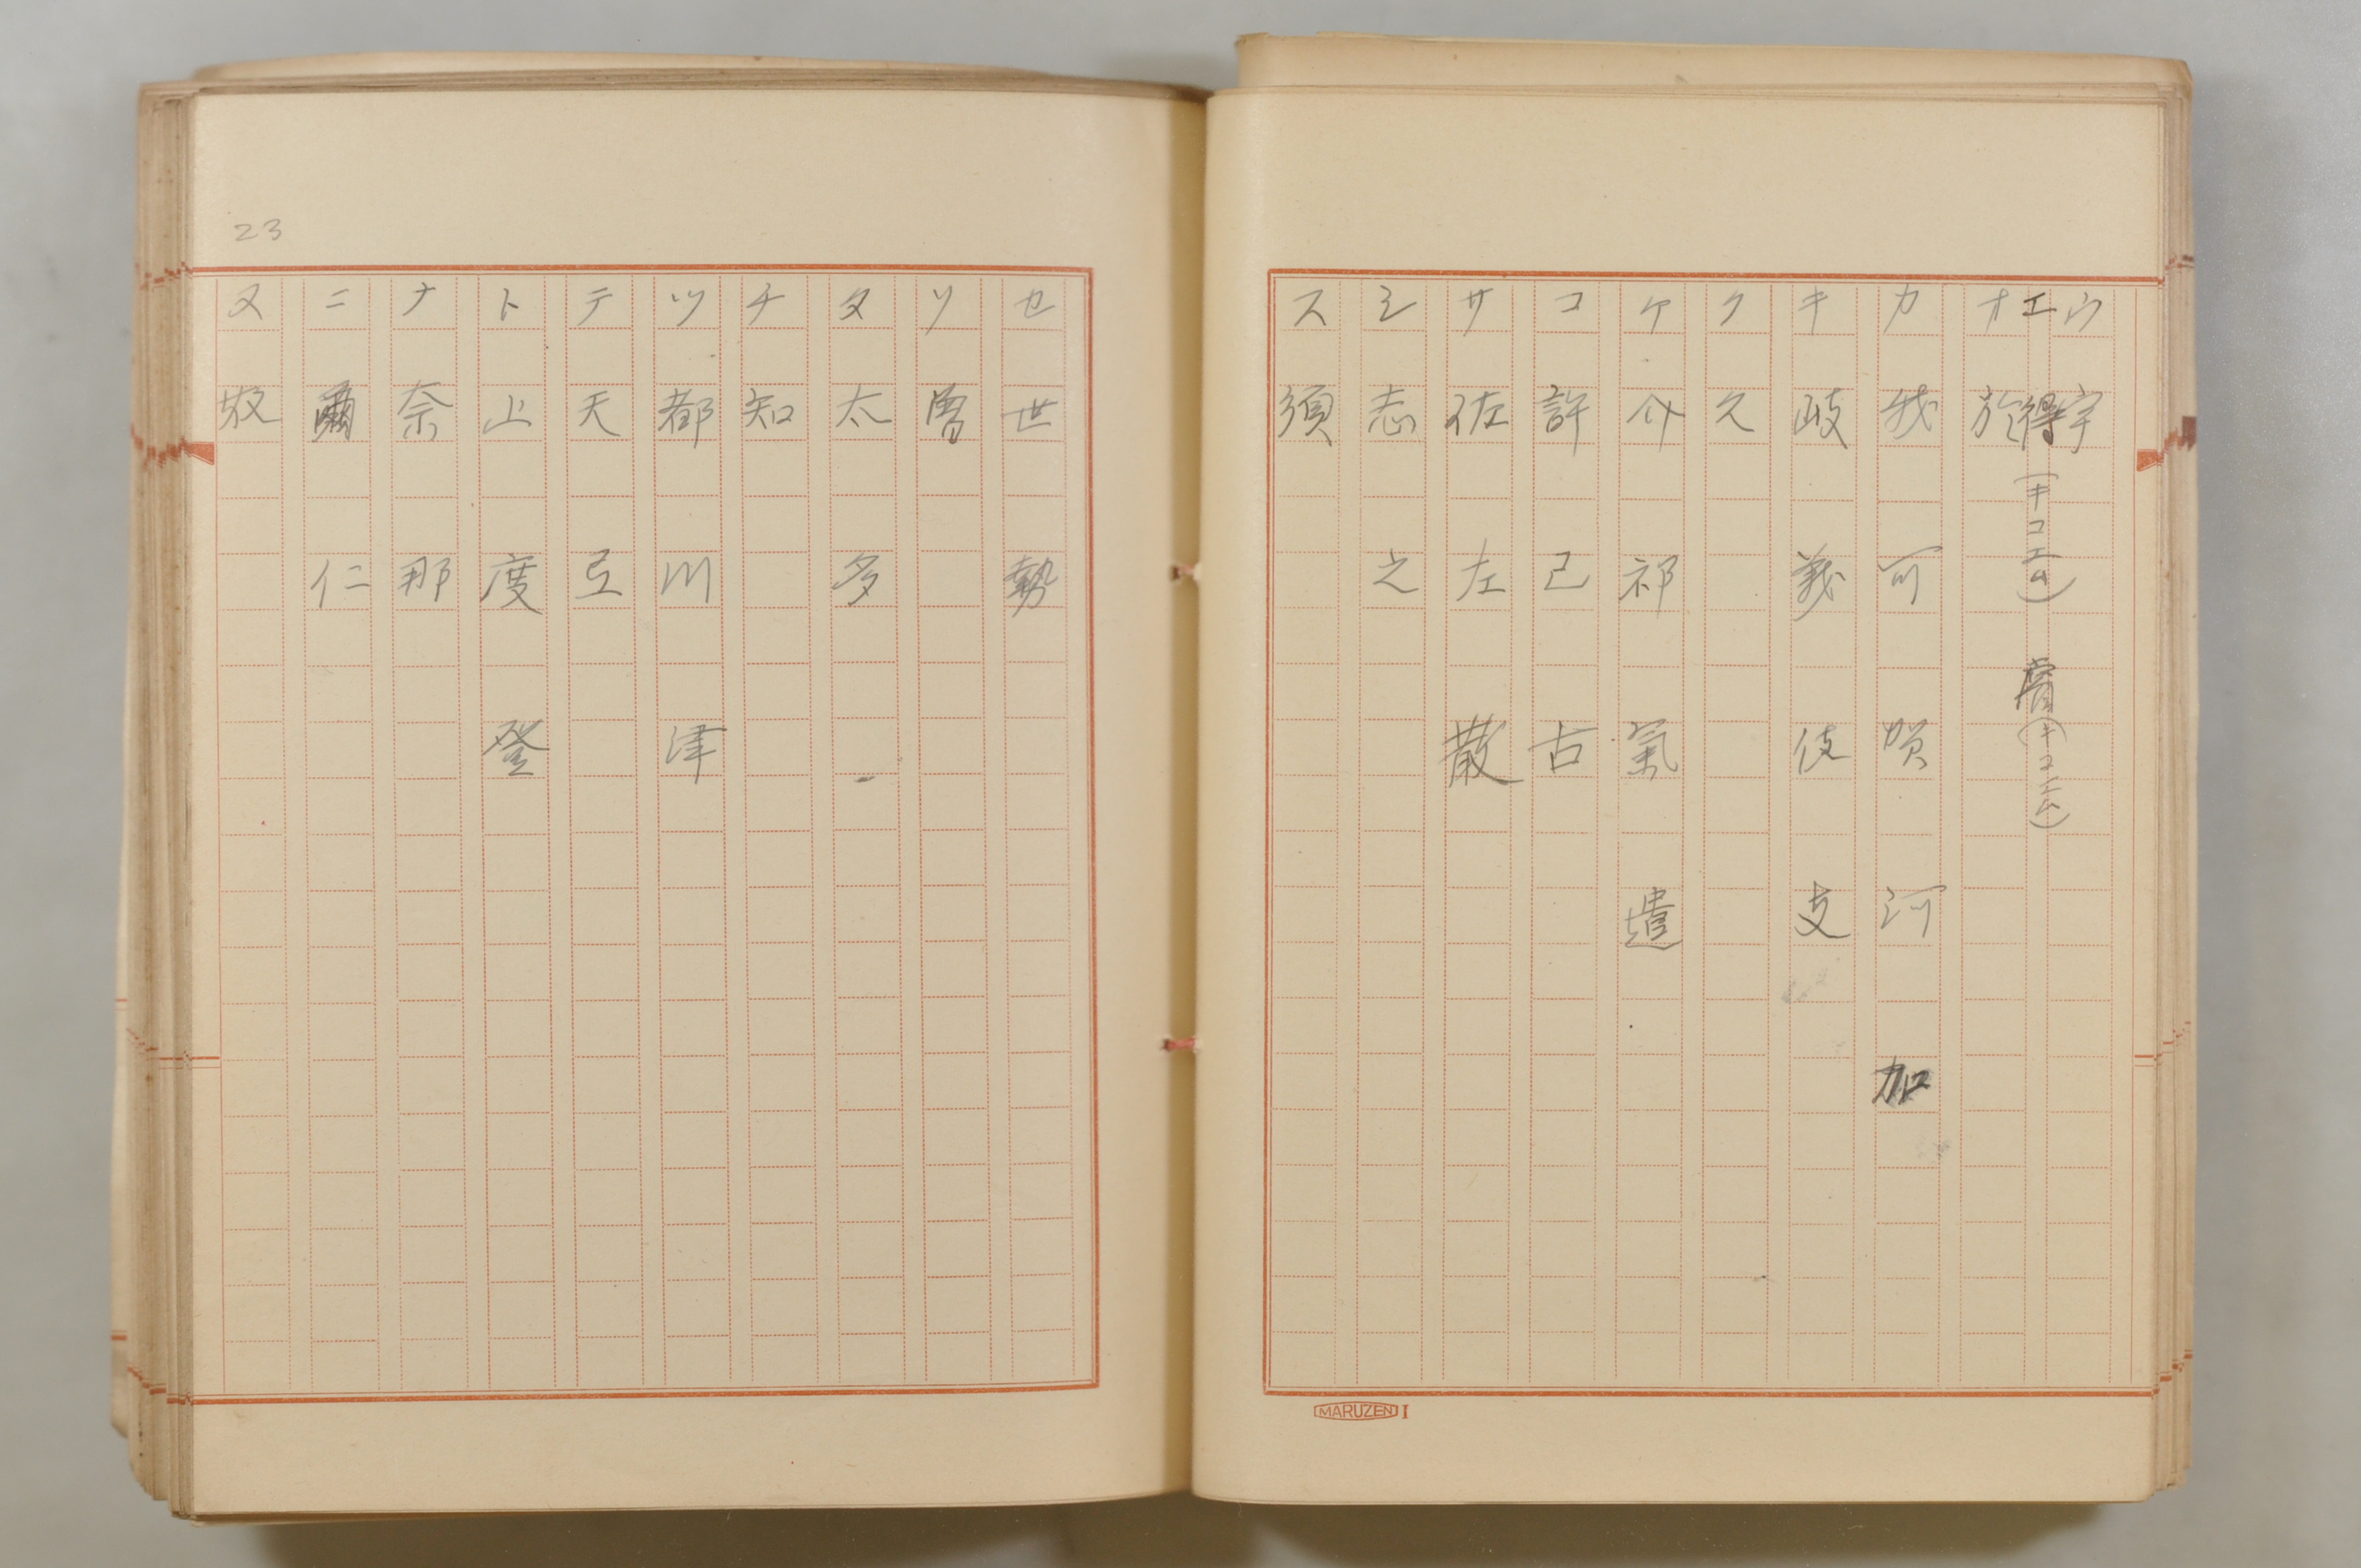 ウ 宇
エ 得(キコエム) (キコエム)
オ 於
カ 我 可 賀 河 加
キ 岐 義 伎 支
ク 久
ケ 介 祁 氣 遣
コ 許 己 古
サ 佐 左 散
シ 志 之
ス 須
MARUZEN I
23
セ 世 勢
ソ 曽
タ 太 多
チ 知
ツ 都 川 津
テ 天 弖
ト 止 度 登
ナ 奈 那
ニ 爾 仁
ヌ